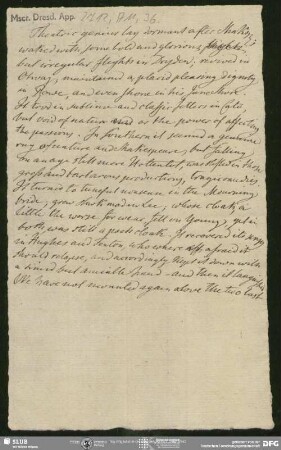 Mscr. Dresd. App. 2712, A 11, 36.
Theatric genius lay dormant after Shakesp.,
waked with some bold and glorious
but irregular flights in Dryden, revived in
Otway, maintained a placid pleasing dignity
in Rowe, and even shone in his Jane Shore.
It trod in sublime and classic fetters in Cato,
but void of nature or the power of affecting
the passions. In Southern it seemed a genuine
ray of nature and Shakespeare, but falling
on an age still more Hottentot, was stifled in those
gross and barbarous productions, tragicomedies.
It turned to tuneful nonsense in the Mourning
bride, grew stark mad in Lee, whose cloak, a
little the worse for wear, fell on Young, yet in
both was still a poet's cloak. It recovered its
in Hughes and Fenton, who were afraid it
should relapse, and accordingly kept it down with
a timid but amiable hand - and then it languished
We have not mounted again above the two last.
SLUB
DFG